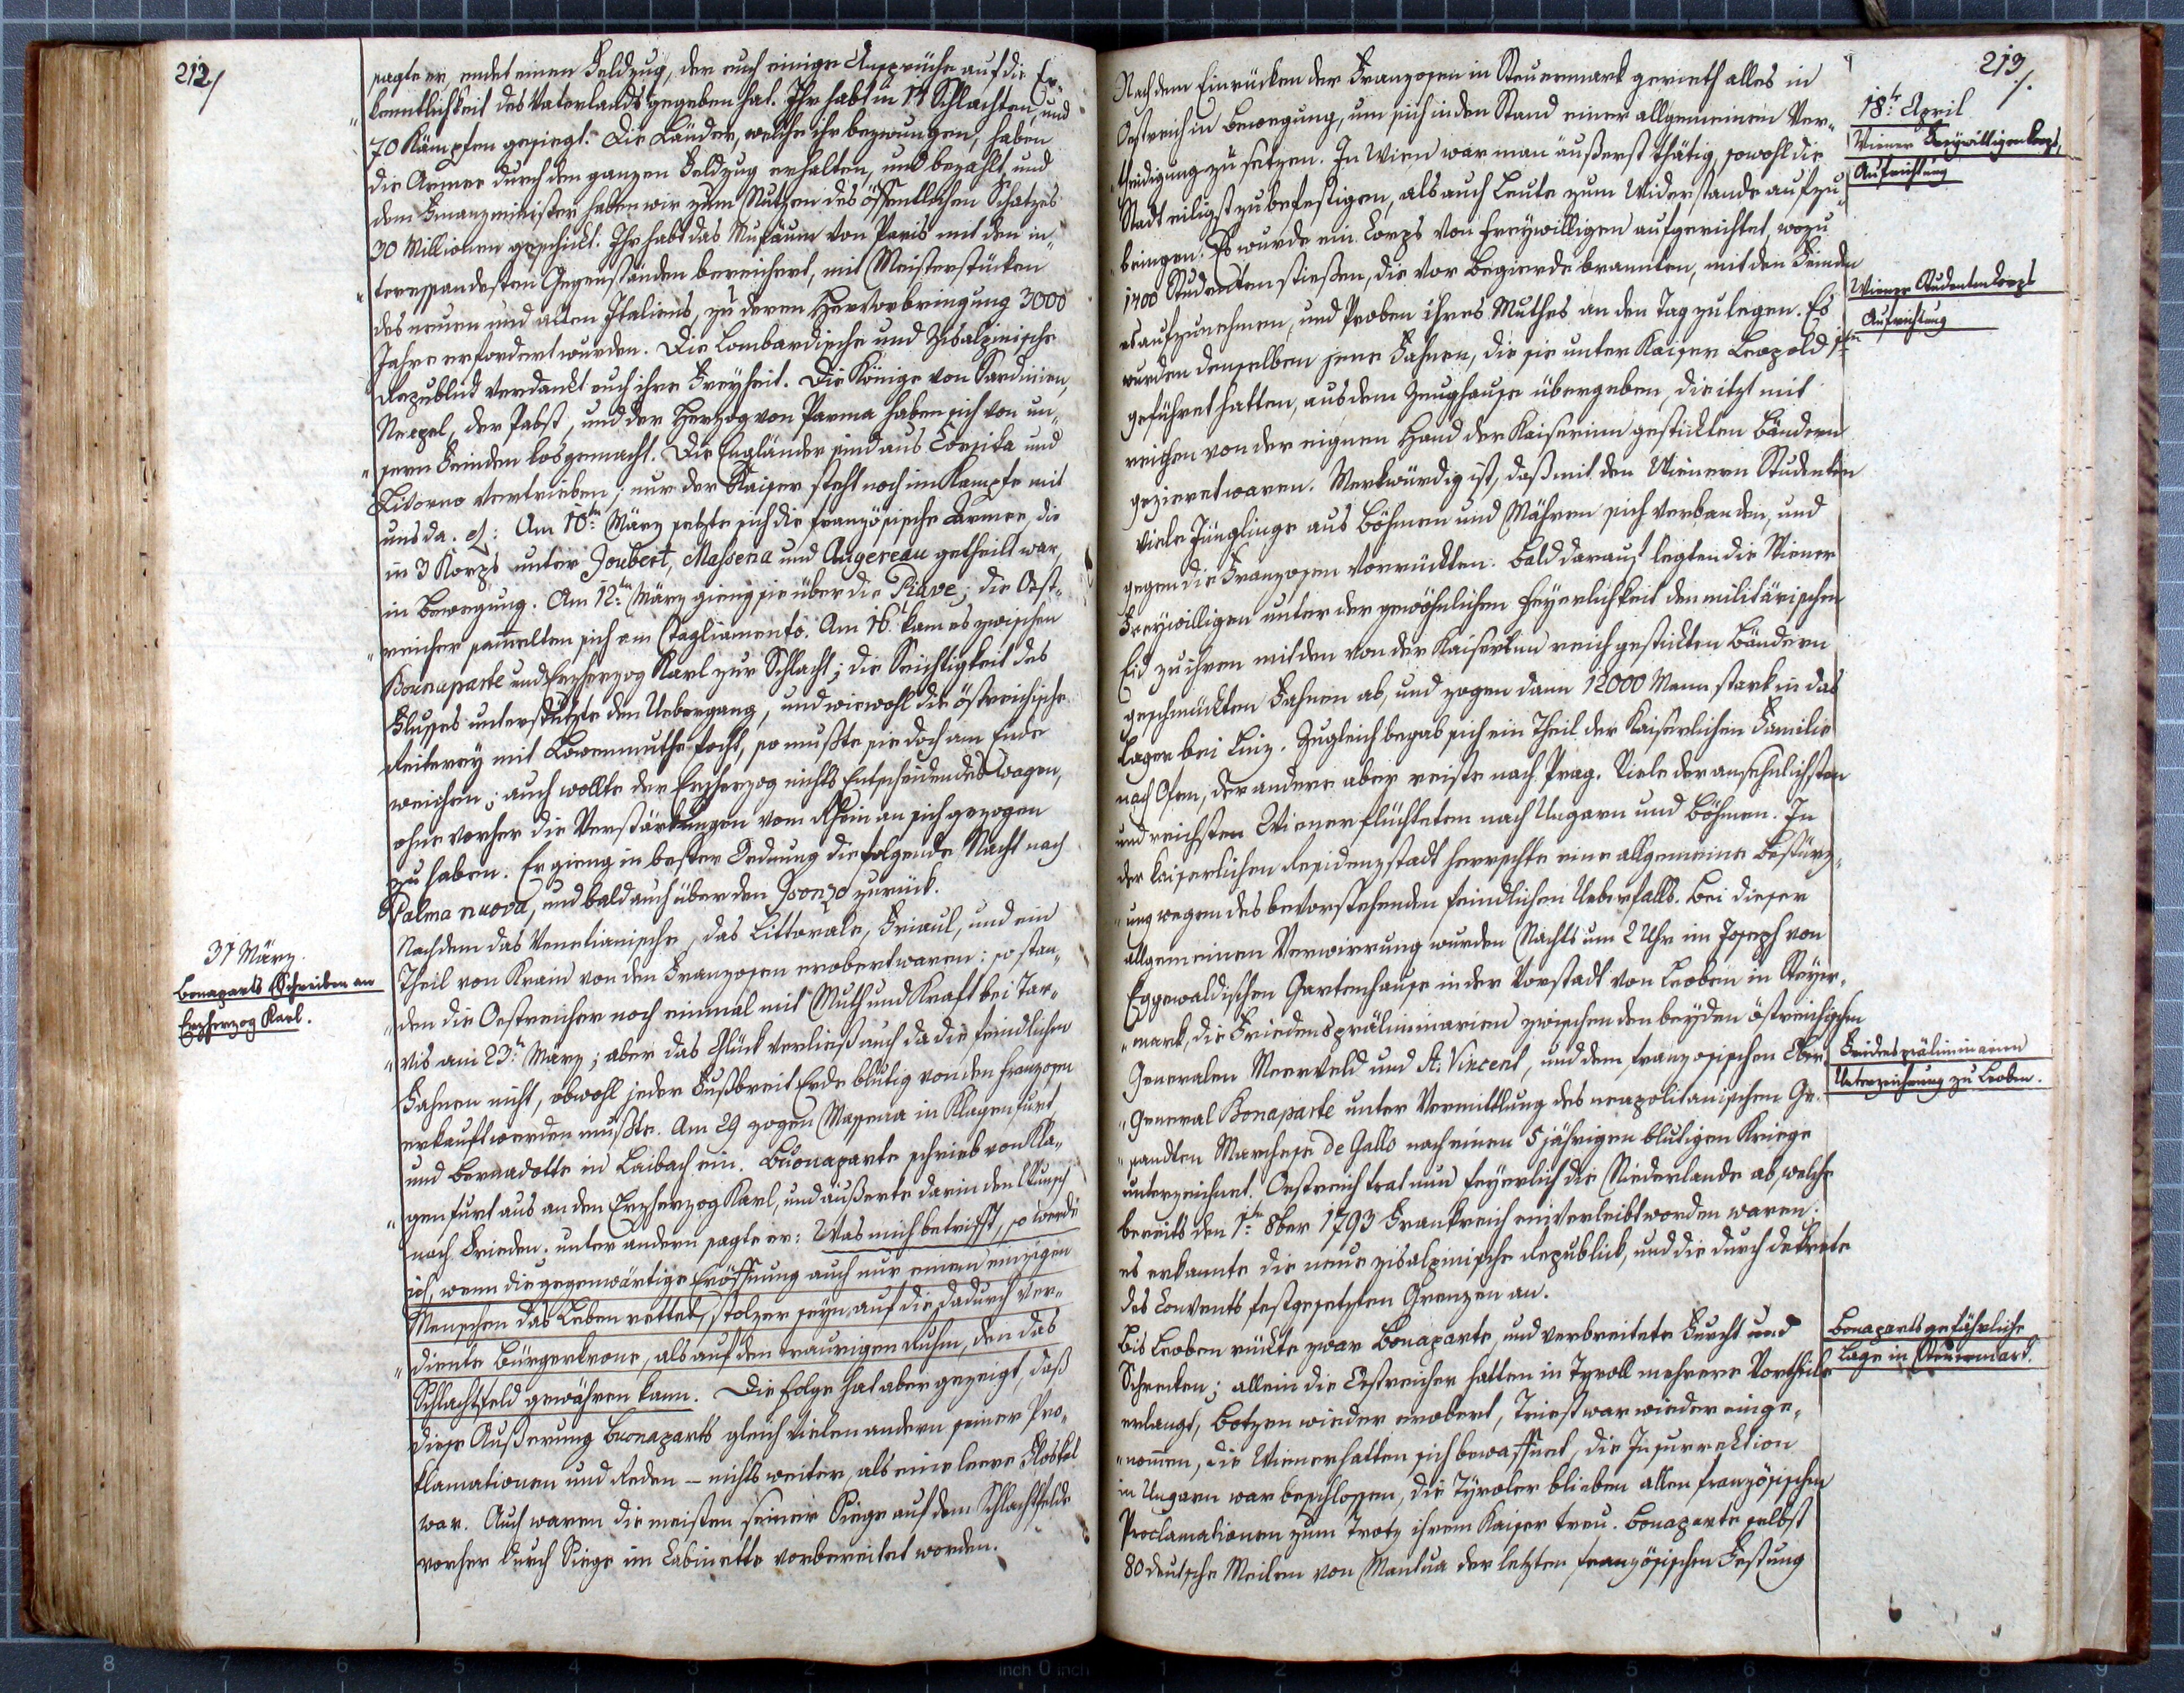 212/
sagte er, endet einen Feldzug, der euch einige Ansprüche auf die Er-
"kenntlichkeit des Vaterlands gegeben hat. Ihr habt in 14 Schlachten, und
70 Kämpfen gesiegt. Die Länder, welche ihr bezwungen, haben
die Armee durch den ganzen Feldzug erhalten, und bezahlt, und
dem Finanzminister haben wir zum Nutzen des öffentlichen Schatzes
30 Millionen geschickt. Ihr habt das Musäum von Paris mit den in-
"teressandesten Gegenständen bereichert, mit Meisterstücken
des neuen und alten Italiens, zu deren Hervorbringung 3000
Jahre erfordert wurden. Die Lombardische und Zisalpinische
Republick verdankt euch ihre Freyheit. Die Könige von Sardinien,
Neapel, der Pabst, und der Herzog von Parma haben sich von un-
"sern Feinden losgemacht. Die Engländer sind aus Corsika und
Livorno vertrieben; nur der Kaiser steht noch im Kampfe mit
uns da. Am 10ten März setzte sich die französische Armee, die
in 3 Korps unter Joubert, Massena und Augereau getheilt war,
in Bewegung. Am 12ten März gieng sie über die Piave; die Oest-
"reicher sammelten sich am Tagliamento. Am 16t kam es zwischen
Bounaparte und Erzherzog Karl zur Schlacht; die Seichtigkeit des
Flusses unterstützte den Uebergang, und wiewohl die östreichische
Reiterey mit Löwenmuthe focht, so mußte sie doch am Ende
weichen; auch wollte der Erzherzog nichts Entscheidendes wagen,
ohne vorher die Verstärkungen vom Rhein an sich gezogen
zu haben. Er gieng in bester Ordnung die folgende Nacht nach
Palma nuova, und bald auch über den Isonzo zurück.
31 März.
Bonaparts Schreiben an
Erzherzog Karl.
Nachdem das Venetianische, das Littorale, Friaul, und ein
Theil von Krain von den Franzosen erobert waren: so stan-
"den die Oestreicher noch einmal mit Muth und Kraft bei Tar-
"vis am 23t März; aber das Glück verließ auch da die feindlichen
Fahnen nicht, obwohl jeder Fußbreit Erde blutig von den Franzosen
erkauft werden mußte. Am 29 zogen Massena in Klagenfurt
und Bernadotte in Laibach ein. Buonaparte schrieb von Kla-
"genfurt aus an den Erzherzog Karl, und äußerte darin den Wunsch
nach Frieden. unter andern sagte er: Was mich betrifft, so werde
ich, wenn die gegenwärtige Eröffnung auch nur einem einzigen
Menschen das Leben rettet, stolzer seyn auf die dadurch ver-
"diente Bürgerkrone, als auf den traurigen Ruhm, den das
Schlachtfeld gewähren kann. Die Folge hat aber gezeigt, daß
diese Äußerung Buonaparts gleich vielen andern seiner Pro-
klamationen und Reden – nichts weiter, als eine leere Floskel
war. Auch waren die meisten seiner Siege auf dem Schlachtfelde
vorher durch Siege im Cabinette vorbereitet worden.
213/.
Nach dem Einrücken der Franzosen in Steuermark gerieth alles in
Oestreich in Bewegung, um sich in den Stand einer allgemeinen Ver-
"theidigung zu setzen. In Wien war man äußerst thätig, sowohl die
Stadt eiligst zu befestigen, als auch Leute zum Widerstande aufzu-
"bringen. Es wurde ein Corps von Freywilligen aufgerichtet, wozu
1400 Studenten stießen, die vor Begierde brannten, mit den Feinden
es aufzunehmen, und Proben ihres Muthes an den Tag zu legen. Es
wurden denselben jene Fahnen, die sie unter Kaiser Leopold Iten
geführet hatten, aus dem Zeughause übergeben, die itzt mit
reichen von der eignen Hand der Kaiserinn gestickten Bändern
gezieret waren. Merkwürdig ist, daß mit den Wienern Studenten
viele Jünglinge aus Böhmen und Mähren sich verbanden, und
gegen die Franzosen vorrückten. Bald darauf legten die Wiener
Freywilligen unter der gewöhnlichen Feyerlichkeit den militärischen
Eid zu ihren mit den von der Kaiserinn reich gestickten Bändern
geschmückten Fahnen ab, und zogen dann 12000 Mann stark in das
Lager bei Linz. Zugleich begab sich ein Theil der Kaiserlichen Familie
nach Ofen, der andere aber reiste nach Prag. Viele der ansehnlichsten
und reichsten Wiener flüchteten nach Ungarn und Böhmen. In
der kaiserlichen Residenzstadt herrschte eine allgemeine Bestürz-
"ung wegen des bevorstehenden feindlichen Ueberfalls. Bei dieser
allgemeinen Verwirrung wurden Nachts um 2 Uhr im Joseph von
Eggewaldischen Gartenhause in der Vorstadt von Leoben in Steyer-
"mark, die Friedenspräliminarien zwischen den beyden östreichischen
Generalen Meerveld und St. Vincent, und dem französischen Ober-
"general Bonaparte unter Vermittlung des neapolitanischen Ge-
"sandten Marchese de Gallo nach einen 5 jährigen blutigen Kriege
unterzeichnet. Oestreich trat nun feyerlich die Niederlande ab, welche
bereits den 1ten 8ber 1793 Frankreich einverleibt worden waren.
es erkannte die neue zisalpinische Republick, und die durch Dekrete
des Convents festgesetzten Grenzen an.
Bis Leoben rückte zwar Bonaparte, und verbreitete Furcht und
Schrecken; allein die Oestreicher hatten in Tyroll mehrere Vortheile
erlangt, Botzen wieder erobert, Triest war wieder einge-
"nommen, die Wiener hatten sich bewaffnet, die Insurrektion
in Ungarn war beschlossen, die Tyroler blieben allen französischen
Proclamationen zum Trotz ihrem Kaiser treu. Bonaparte selbst
80 deutsche Meilen von Mantua der letzten französischen Festung
18t April
Wiener Freywilligen Corps,
Aufrichtung
Wiener Studenten Corps
Aufrichtung
Friedenspräliminarien
Unterzeichnung zu Leoben.
Bonaparts gefährliche
Lage in Steuermark.
8 7 6 5 4 3 2 1 inch 0 inch 1 2 3 4 5 6 7 8 9